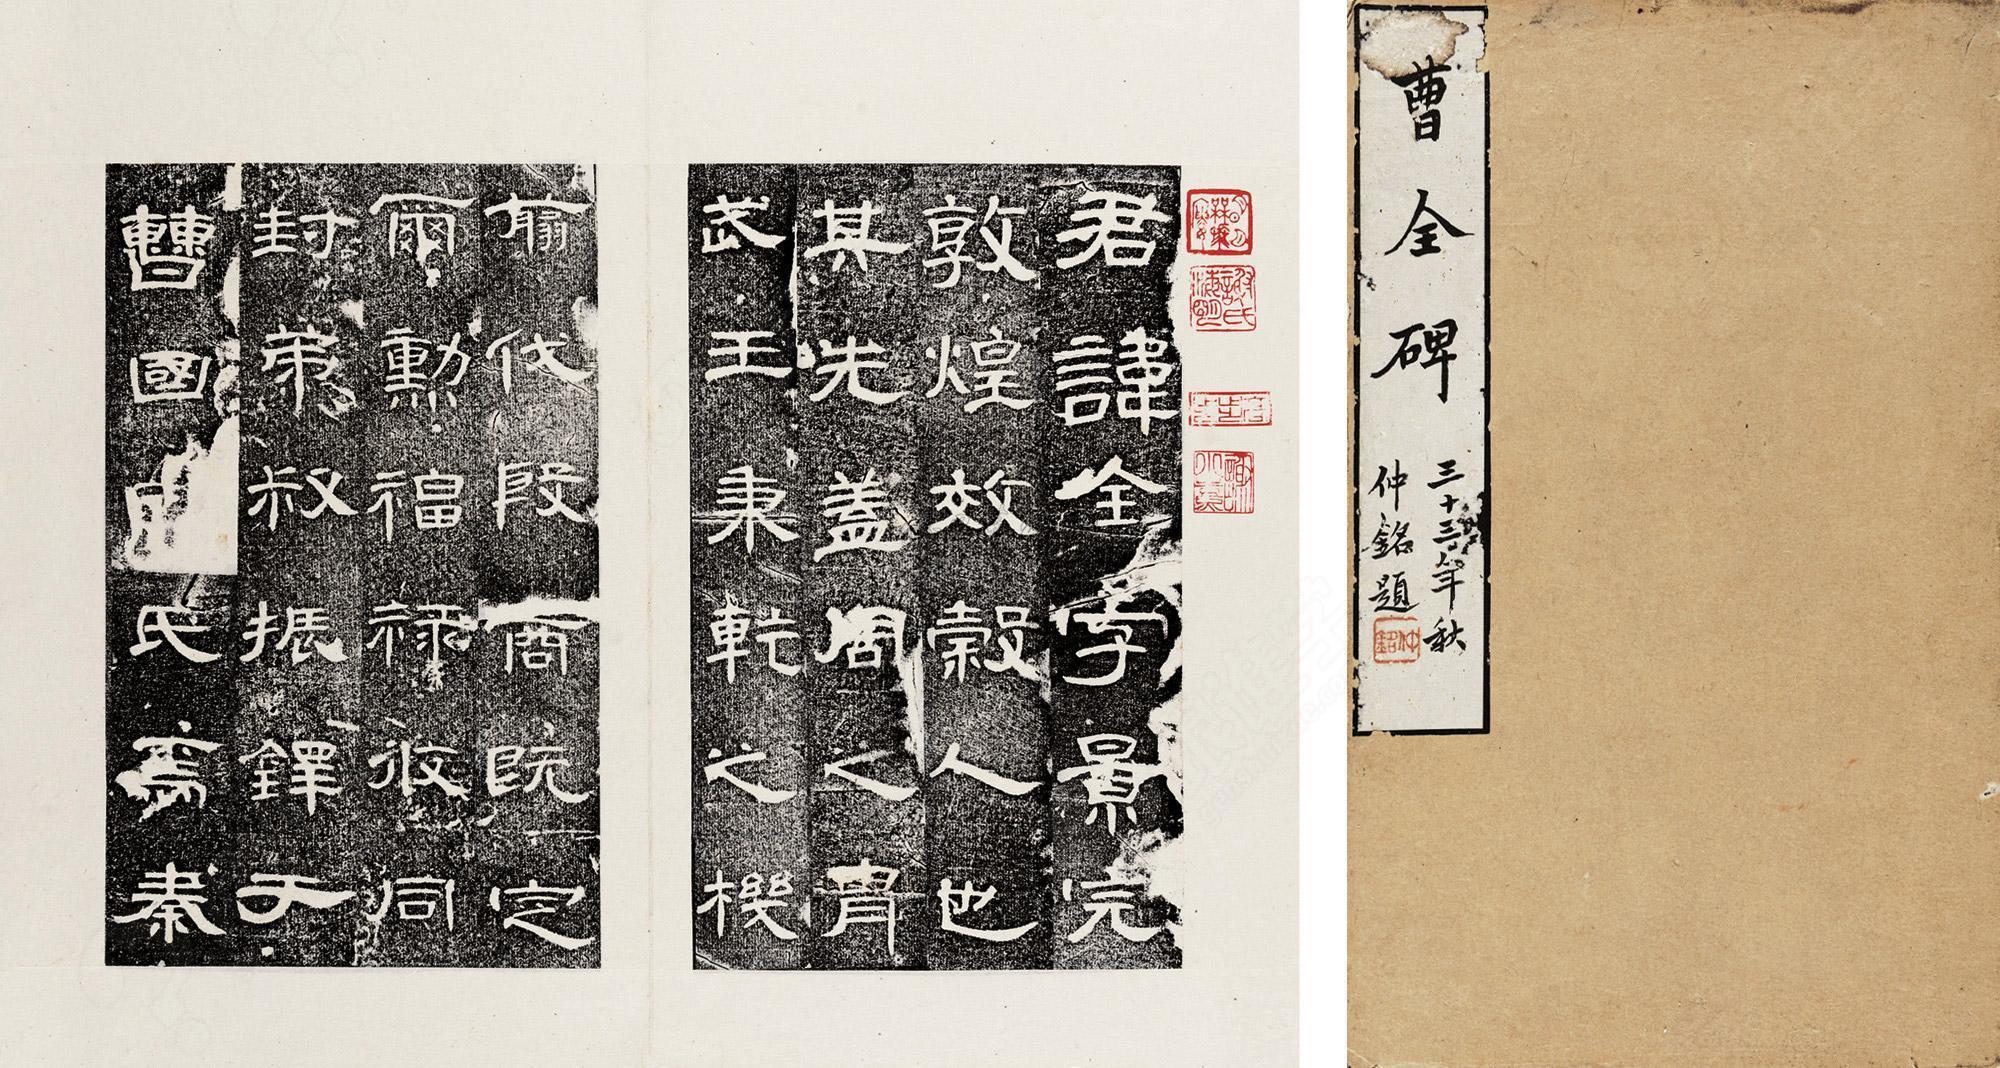 曹全碑
三十三年秋
仲銘題
仲銘
君諱全字景完
敦煌效穀人也
其先蓋周之胄
武王秉乾之機
翦伐殷商既定
爾勳福祿攸同
封弟叔振鐸于
曹國因氏焉秦